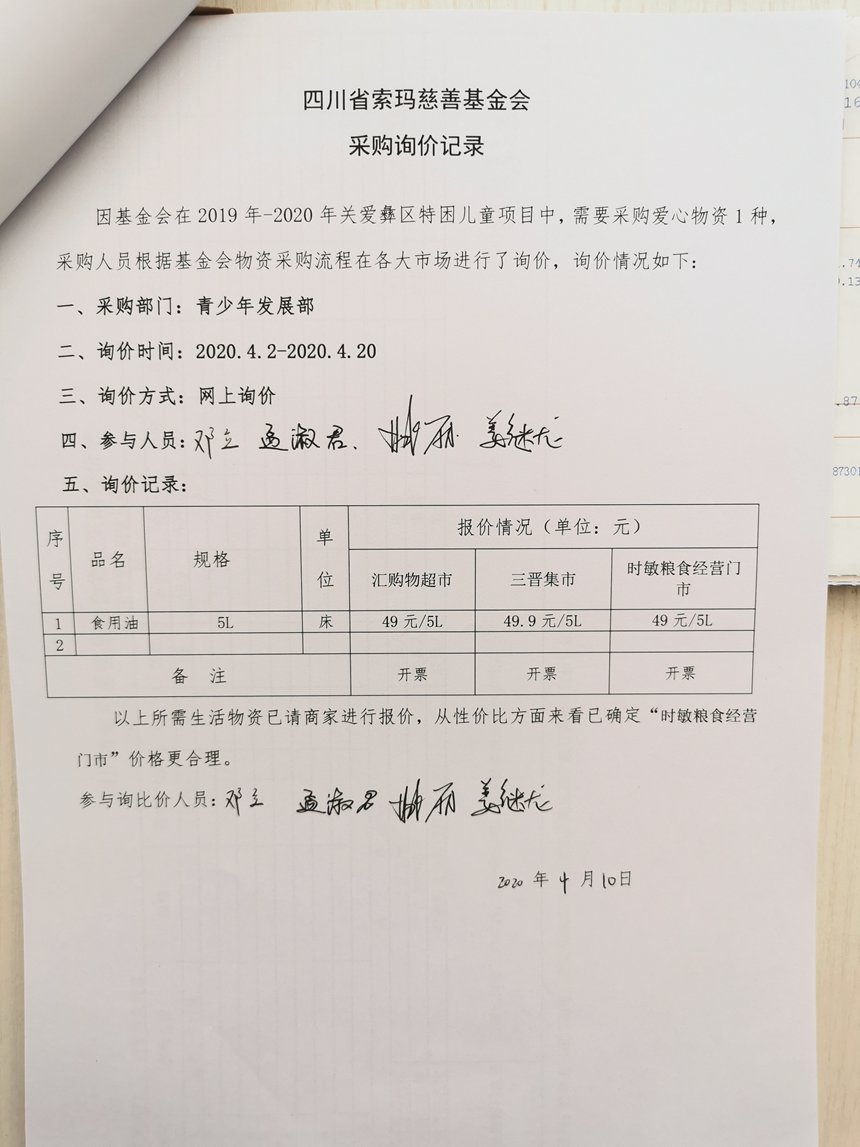 四川省索玛慈善基金会
采购询价记录
因基金会在 2019 年-2020 年关爱彝区特困儿童项目中，需要采购爱心物资 1 种，
采购人员根据基金会物资采购流程在各大市场进行了询价，询价情况如下：
一、采购部门：青少年发展部
二、询价时间：2020.4.2-2020.4.20
三、询价方式：网上询价
四、参与人员：邓立 孟淑君、 姜继尤
五、询价记录：
序号 品名 规格 单位 报价情况（单位：元）
汇购物超市 三晋集市 时敏粮食经营门市
1 食用油 5L 床 49 元/5L 49.9 元/5L 49 元/5L
2
备 注 开票 开票 开票
以上所需生活物资已请商家进行报价，从性价比方面来看已确定“时敏粮食经营
门市”价格更合理。
参与询比价人员：邓立 孟淑君 姜继尤
2020 年 4 月 10日